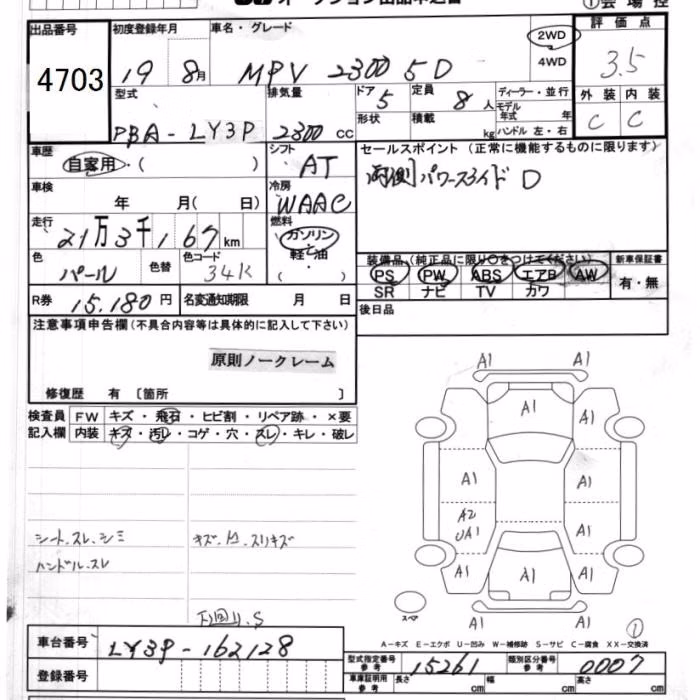 ①会場控
出品番号 初度登録年月 車名・グレード 2WD 評価点
4703 19 8月 MPV 2300 5D 4WD 3.5
型式 排気量 ドア 5 定員 8人 ディーラー・並行 外装 内装
PBA-LY3P 2300cc 形状 積載 kg モデル年式 年 ハンドル 左・右 C C
車歴 シフト セールスポイント(正常に機能するものに限ります)
自家用・( ) AT 両側パワースライドD
車検 年 月( 日) 冷房 WAAC
走行 21万3千167km 燃料 ガソリン
軽油
( )
装備品(純正品に限り○をつけてください) 新車保証書
色 パール 色替 色コード 34K PS PW ABS エアB AW 有・無
SR ナビ TV カワ
R券 15.180円 名変通知期限 月 日 後日品
注意事項申告欄(不具合内容等は具体的に記入して下さい)
原則ノークレーム
修復歴 有〔箇所 〕
検査員 FW キズ・飛石・ヒビ割・リペア跡・×要
記入欄 内装 キズ・汚レ・コゲ・穴・スレ・キレ・破レ
A1 A1
A1 A1 A1
A1 A1
A2 UA1 A1
A1 A1 A1
A1 A1
スペア
シート.スレ.シミ キズ.凹.スリキズ
ハンドル.スレ
下回り.S
①
A-キズ E-エクボ U-凹み W-補修跡 S-サビ C-腐食 XX-交換済
車台番号 LY3P-162128
型式指定番号参考 15261 類別区分番号参考 0007
登録番号 車庫証明用参考 長さ cm 幅 cm 高さ cm